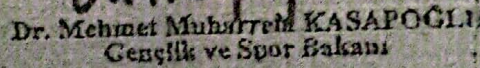 Dr. Mehmet Muharrem KASAPOĞLU
Gençlik ve Spor Bakanı